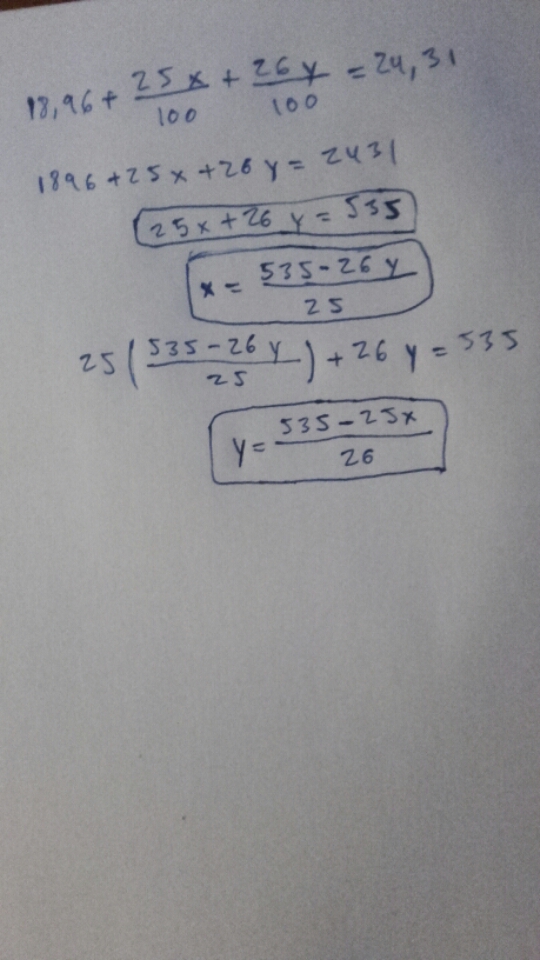 18,96 + 25x/100 + 26y/100 = 24,31
1896 + 25x + 26y = 2431
25x + 26y = 535
x = (535 - 26y)/25
25((535 - 26y)/25) + 26y = 535
y = (535 - 25x)/26